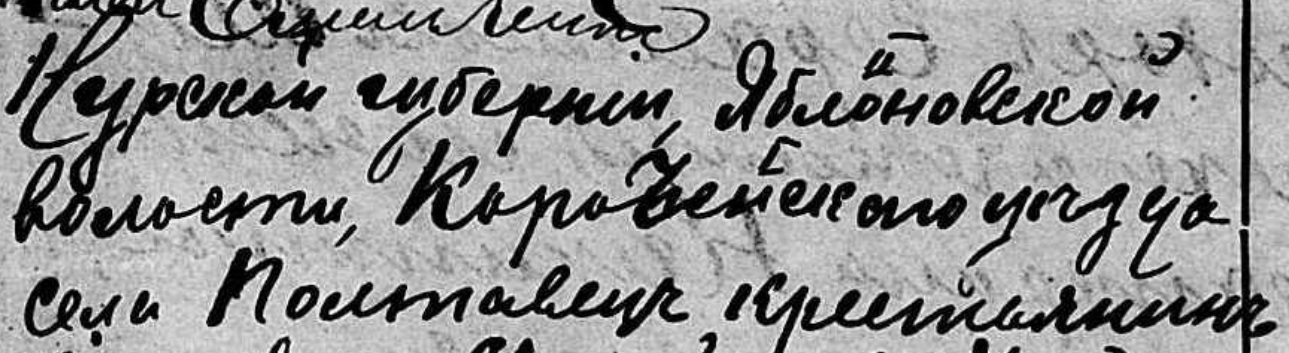 Курской губерніи, Яблоновской
волости, Корочейскаго уѣзда
села Полтавецъ крестьянинъ